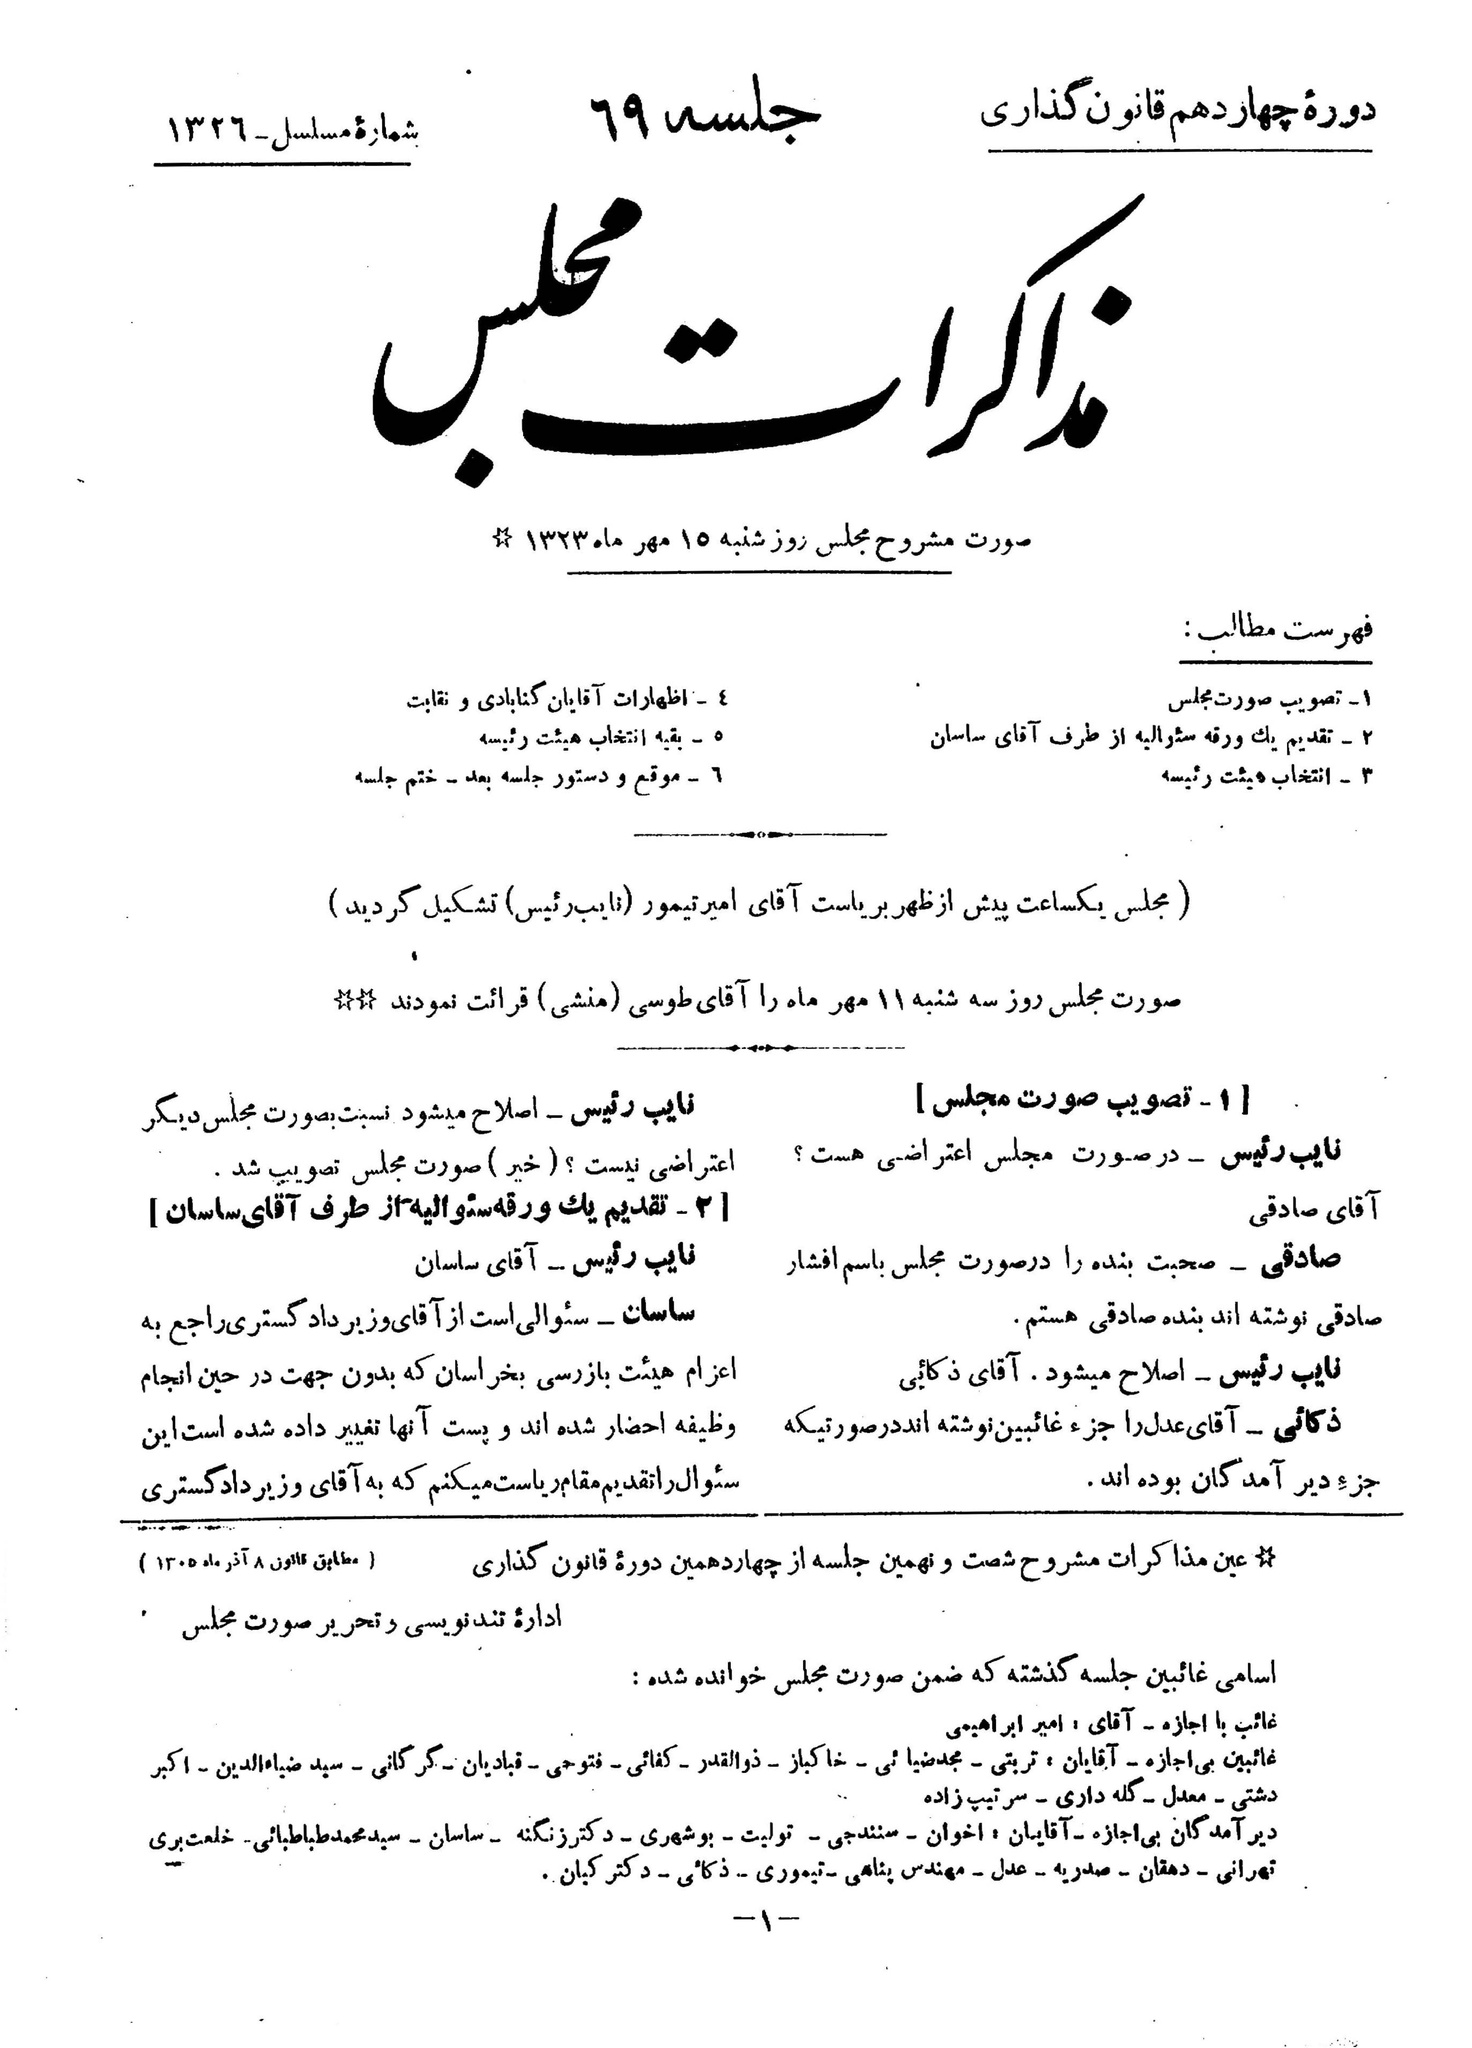 دورهٔ چهاردهم قانون گذاری
جلسه ٦٩
شمارهٔ مسلسل ـ ١٣٢٦
مذاکرات مجلس
صورت مشروح مجلس روز شنبه ١٥ مهر ماه ١٣٢٣ ☆
فهرست مطالب :
١ ـ تصویب صورت مجلس
٢ ـ تقدیم یك ورقه سئوالیه از طرف آقای ساسان
٣ ـ انتخاب هیئت رئیسه
٤ ـ اظهارات آقایان گنابادی و نقابت
٥ ـ بقیه انتخاب هیئت رئیسه
٦ ـ موقع و دستور جلسه بعد ـ ختم جلسه
( مجلس یکساعت پیش از ظهر بریاست آقای امیر تیمور (نایب رئیس) تشکیل گردید )
صورت مجلس روز سه شنبه ١١ مهر ماه را آقای طوسی (منشی) قرائت نمودند ☆☆
[ ١ ـ تصویب صورت مجلس ]
نایب رئیس ـ در صورت مجلس اعتراضی هست ؟
آقای صادقی
صادقی ـ صحبت بنده را در صورت مجلس باسم افشار
صادقی نوشته اند بنده صادقی هستم .
نایب رئیس ـ اصلاح میشود . آقای ذکائی
ذکائی ـ آقای عدل را جزء غائبین نوشته اند در صورتیکه
جزء دیر آمدگان بوده اند .
نایب رئیس ـ اصلاح میشود نسبت بصورت مجلس دیگر
اعتراضی نیست ؟ ( خیر ) صورت مجلس تصویب شد .
[ ٢ ـ تقدیم یك ورقه سئوالیه از طرف آقای ساسان ]
نایب رئیس ـ آقای ساسان
ساسان ـ سئوالی است از آقای وزیر دادگستری راجع به
اعزام هیئت بازرسی بخراسان که بدون جهت در حین انجام
وظیفه احضار شده اند و پست آنها تغییر داده شده است این
سئوال را تقدیم مقام ریاست میکنم که به آقای وزیر دادگستری
☆ عین مذاکرات مشروح شصت و نهمین جلسه از چهاردهمین دورهٔ قانون گذاری
( مطابق قانون ٨ آذر ماه ١٣٠٥ )
ادارهٔ تندنویسی و تحریر صورت مجلس
اسامی غائبین جلسه گذشته که ضمن صورت مجلس خوانده شده :
غائب با اجازه ـ آقای : امیر ابراهیمی
غائبین بی اجازه ـ آقایان : تربتی ـ مجد ضیائی ـ خاکباز ـ ذوالقدر ـ کفائی ـ فتوحی ـ قبادیان ـ گرگانی ـ سید ضیاءالدین ـ اکبر
دشتی ـ معدل ـ گله داری ـ سرتیپ زاده
دیر آمدگان بی اجازه ـ آقایان : اخوان ـ سنندجی ـ تولیت ـ بوشهری ـ دکتر زنگنه ـ ساسان ـ سید محمد طباطبائی ـ خلعت بری
تهرانی ـ دهقان ـ صدریه ـ عدل ـ مهندس پناهی ـ تیموری ـ ذکائی ـ دکتر کیان .
ـ ١ ـ